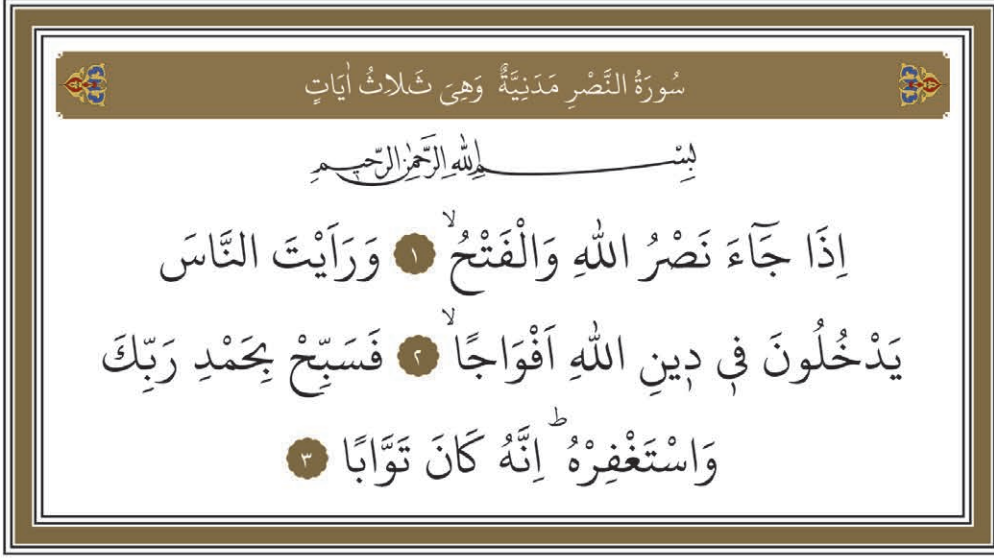 سُورَةُ النَّصْرِ مَدَنِيَّةٌ وَهِيَ ثَلَاثُ اٰيَاتٍ
بِسْمِ اللهِ الرَّحْمٰنِ الرَّحِيمِ
اِذَا جَٓاءَ نَصْرُ اللهِ وَالْفَتْحُۙ ١ وَرَاَيْتَ النَّاسَ
يَدْخُلُونَ فٖي دٖينِ اللهِ اَفْوَاجًاۙ ٢ فَسَبِّحْ بِحَمْدِ رَبِّكَ
وَاسْتَغْفِرْهُؕ اِنَّهُ كَانَ تَوَّابًا ٣